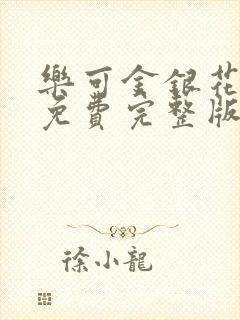 樂可金銀花
免費完整版
徐小龍